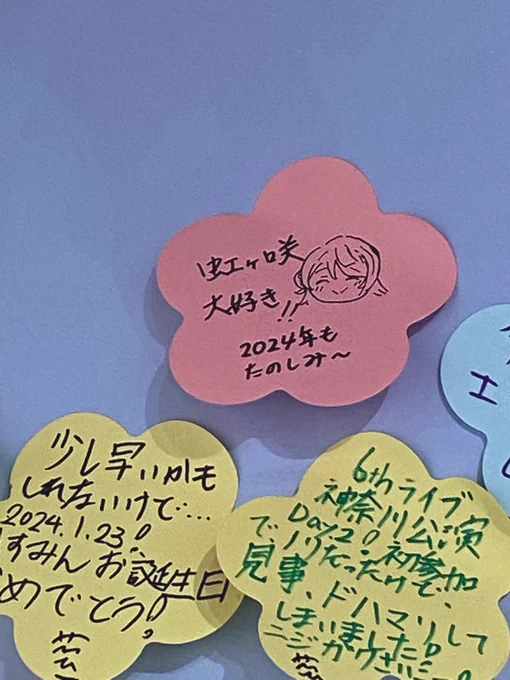 虹ヶ咲
大好き!!
2024年も
たのしみ〜
少し早いかも
しれないけど…
2024.1.23!
すみんお誕生日
めでとう!
6thライブ
神奈川公演
Day2!初参加
で、ノリだったけど、
見事、ドハマりして
しまいました!
エ